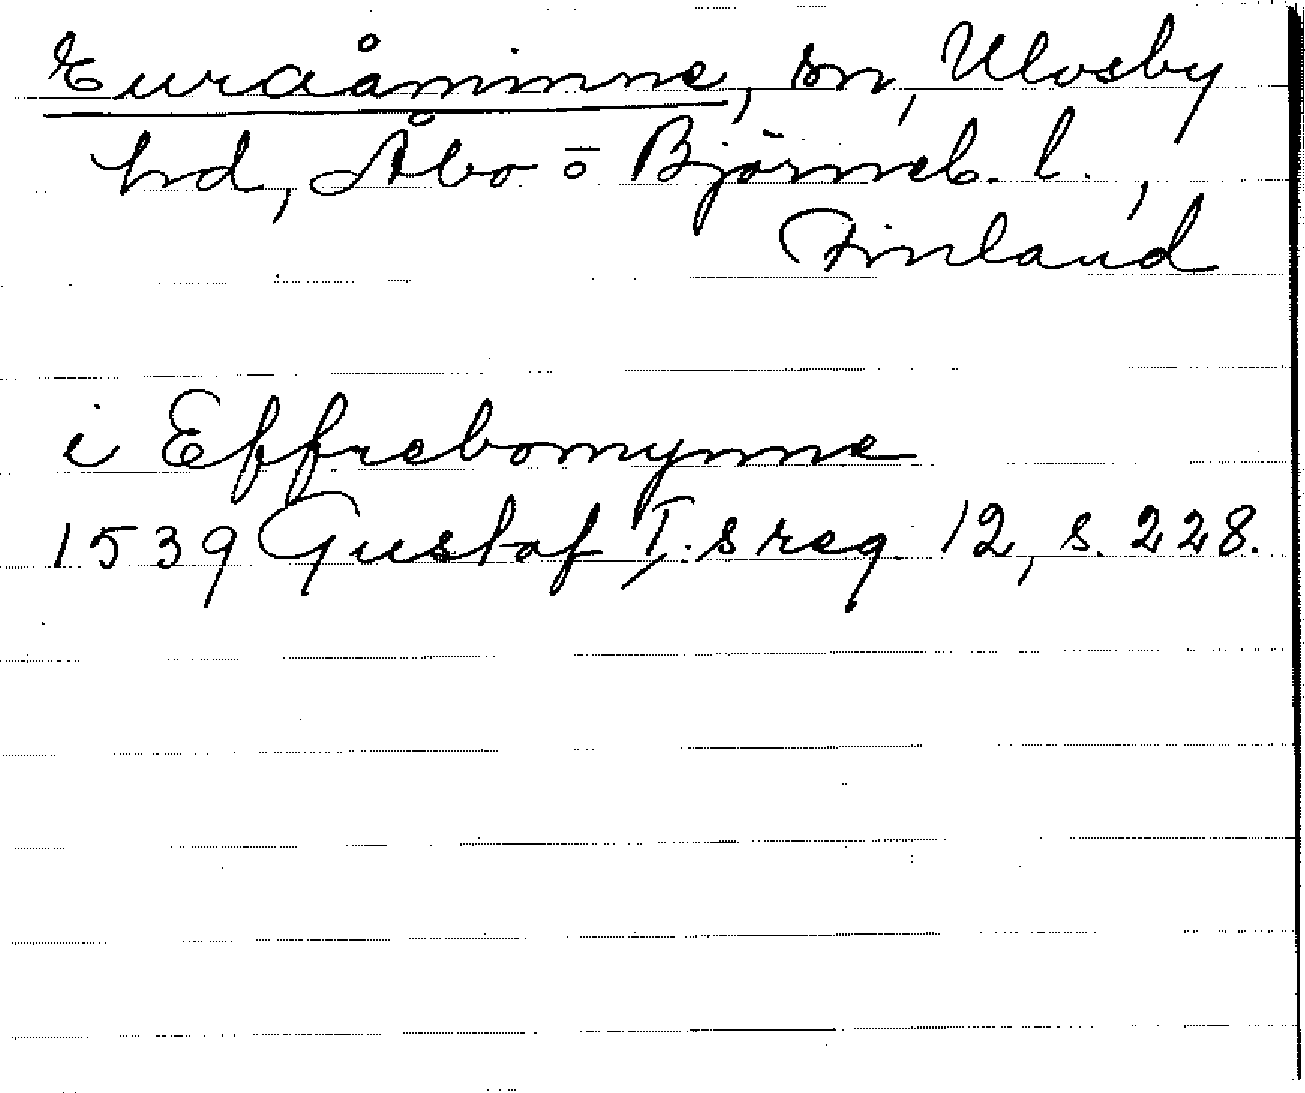 Euraåminne, sn, Ulvsby
hd, Åbo o Björneb. l.,
Finland
i Effrebomynne
1539 Gustaf I:s reg. 12, s. 228.